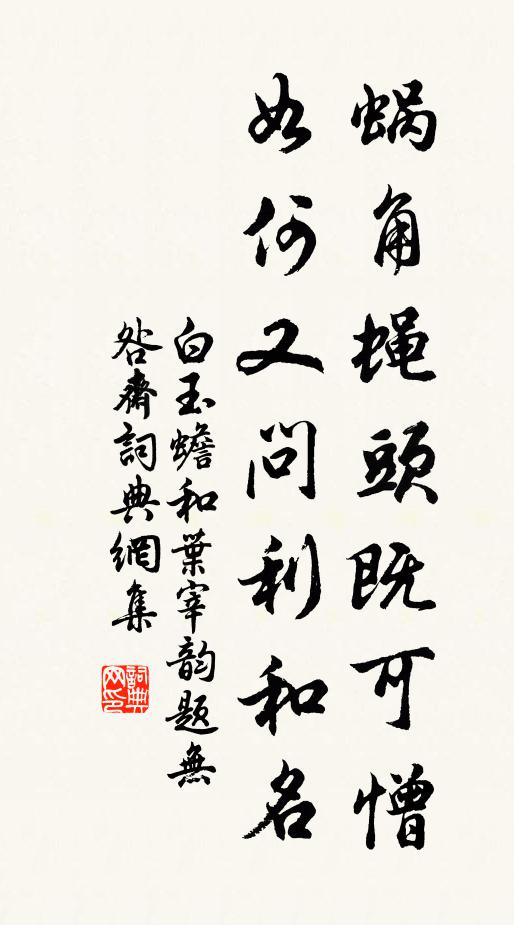 蝸角蝇頭既可憎
如何又问利和名
白玉蟾和葉宰韵题無
咎齋詞典網集
詞典网印